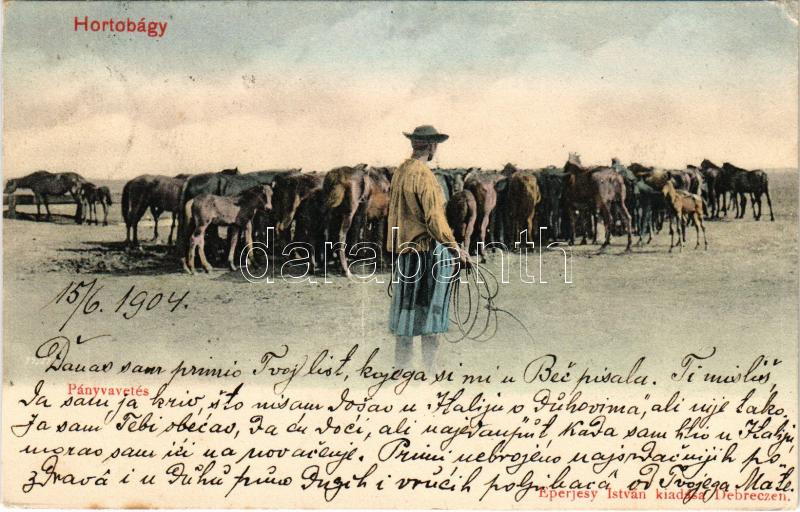 Hortobágy
darabanth
15/6. 1904.
Danas sam primio Tvoj list, kojega si mi u Beč pisala. Ti misliš,
Pányvavetés
da sam ja kriv, što nisam došao u Italiju o Duhovima, ali nije tako.
Ja sam Tebi obećao, da ću doći, ali najedanput, kada sam htio u Italiju
morao sam ići na novačenje. Primi nebrojeno najsrdačnijih po-
zdrava i u duhu puno dugih i vrućih poljubaca od Tvojega Mate.
Eperjesy István kiadása Debreczen.